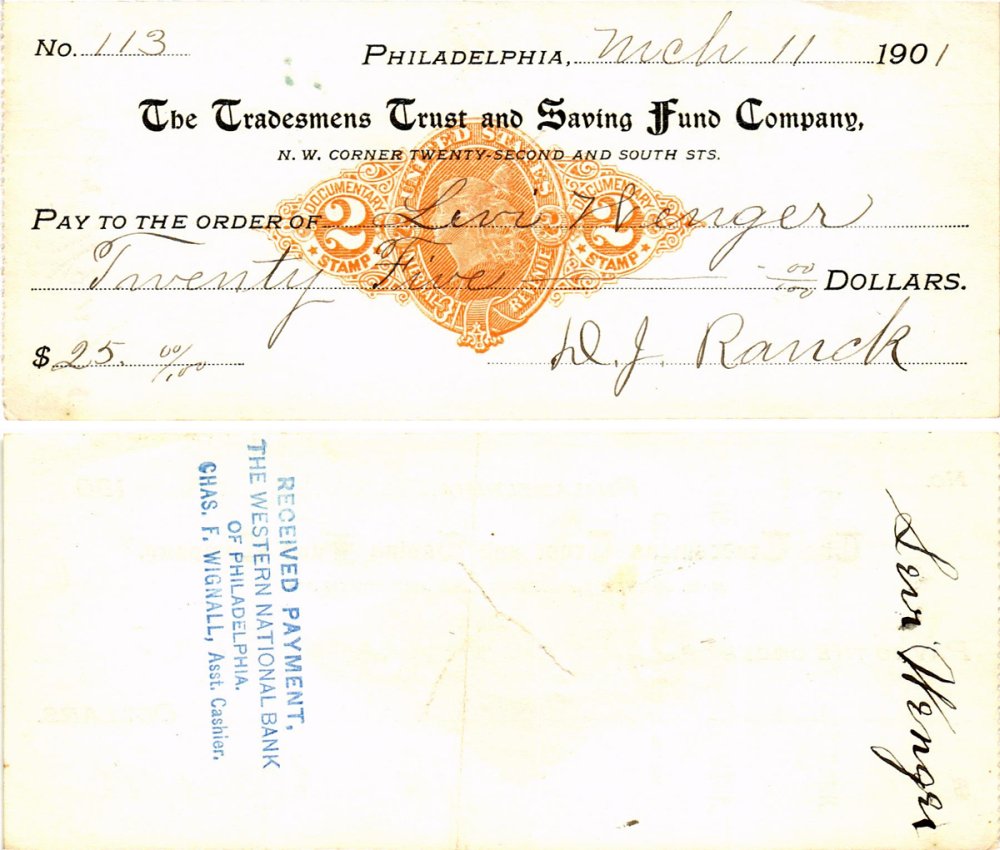 No. 113
PHILADELPHIA, Mch 11 1901
The Tradesmens Trust and Saving Fund Company,
N. W. CORNER TWENTY-SECOND AND SOUTH STS.
UNITED STATES
DOCUMENTARY 2 STAMP
DOCUMENTARY 2 STAMP
INTERNAL REVENUE
PAY TO THE ORDER OF Levi Wenger
Twenty Five 00/100 DOLLARS.
$ 25. 00/100
D. J. Ranck
RECEIVED PAYMENT,
THE WESTERN NATIONAL BANK
OF PHILADELPHIA.
CHAS. F. WIGNALL, Asst. Cashier.
Levi Wenger